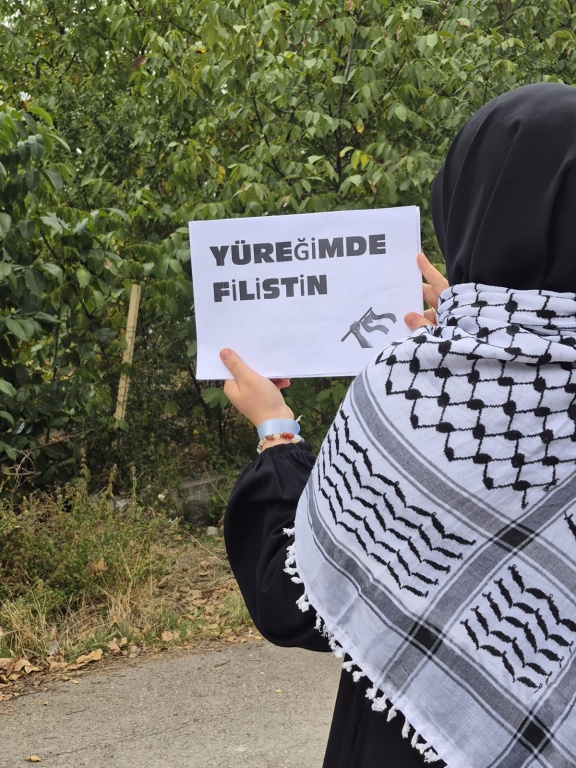 YÜREĞİMDE
FİLİSTİN